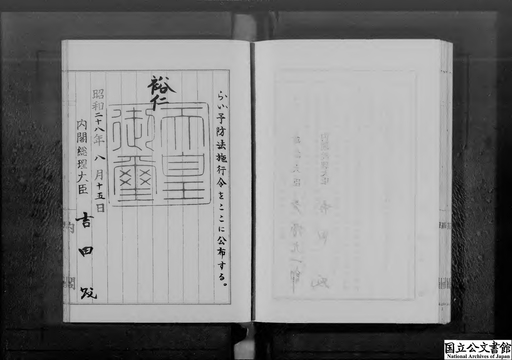 らい予防法施行令をここに公布する。
裕仁
天皇
御璽
昭和二十八年八月十五日
内閣総理大臣 吉田茂
内閣
国立公文書館
National Archives of Japan